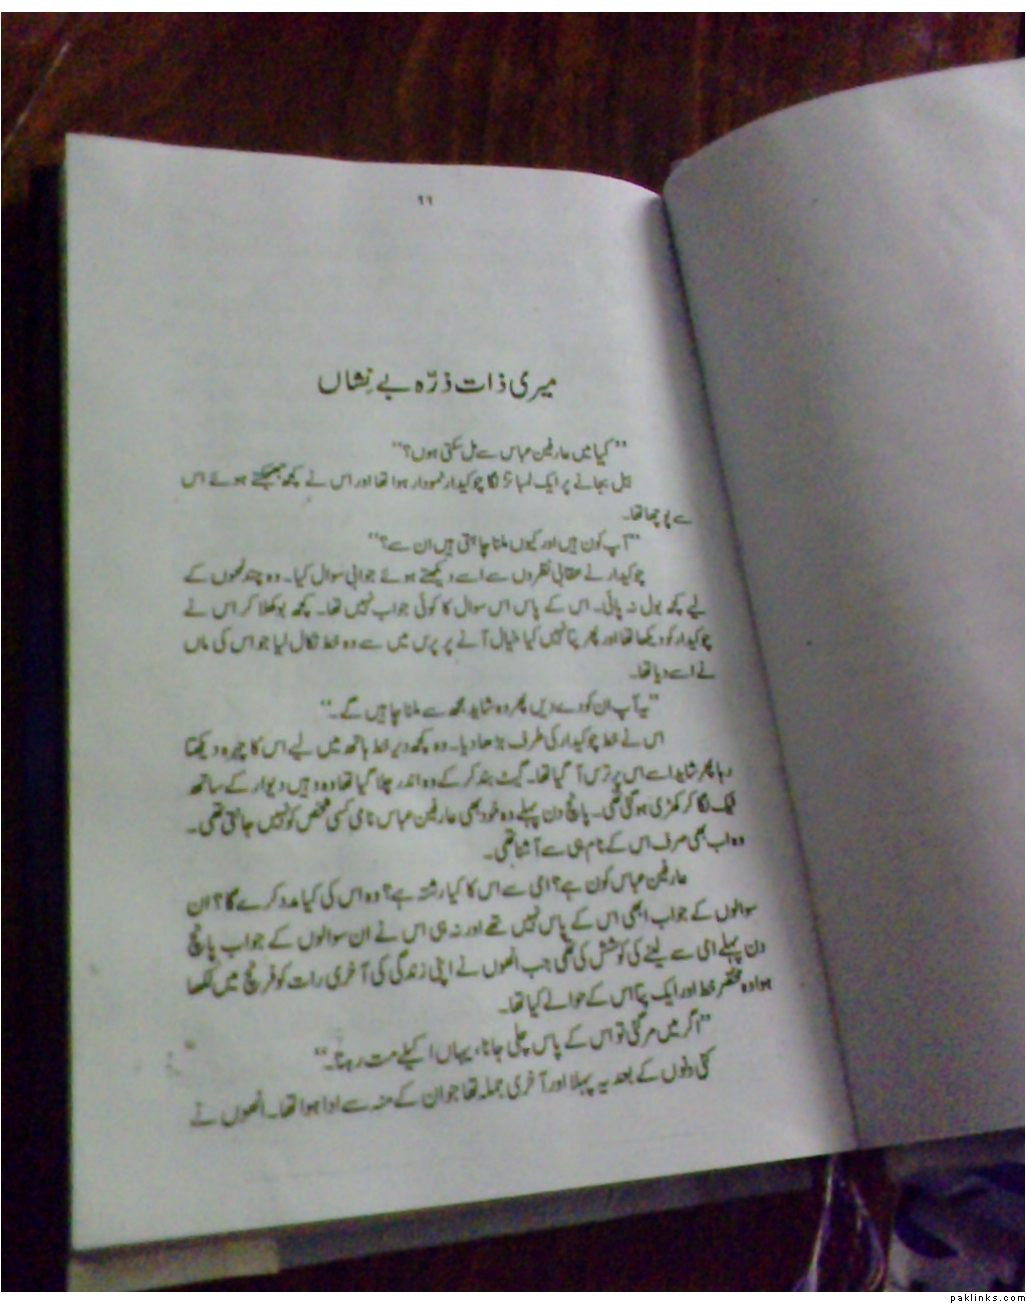 ۲۶
میری ذات ذرّہ بے نِشاں
"کیا میں عارفین عباس سے مل سکتی ہوں؟"
بیل بجانے پر ایک لمبا تڑنگا چوکیدار نمودار ہوا تھا اور اس نے کچھ جھجکتے ہوئے اس
سے پوچھا تھا۔
"آپ کون ہیں اور کیوں ملنا چاہتی ہیں ان سے؟"
چوکیدار نے عقابی نظروں سے اسے دیکھتے ہوئے جوابی سوال کیا۔ وہ چند لمحوں کے
لیے کچھ بول نہ پائی۔ اس کے پاس اس سوال کا کوئی جواب نہیں تھا۔ کچھ بوکھلا کر اس نے
چوکیدار کو دیکھا تھا اور پھر پتا نہیں کیا خیال آنے پر پرس میں سے وہ خط نکال لیا جو اس کی ماں
نے اسے دیا تھا۔
"یہ آپ ان کو دے دیں پھر وہ شاید مجھ سے ملنا چاہیں گے۔"
اس نے خط چوکیدار کی طرف بڑھا دیا۔ وہ کچھ دیر خط ہاتھ میں لیے اس کا چہرہ دیکھتا
رہا پھر شاید اسے اس پر ترس آ گیا تھا۔ گیٹ بند کر کے وہ اندر چلا گیا تھا وہ وہیں دیوار کے ساتھ
ٹیک لگا کر کھڑی ہو گئی تھی۔ پانچ دن پہلے وہ خود بھی عارفین عباس نامی کسی شخص کو نہیں جانتی تھی۔
وہ اب بھی صرف اس کے نام ہی سے آشنا تھی۔
عارفین عباس کون ہے؟ امی سے اس کا کیا رشتہ ہے؟ وہ اس کی کیا مدد کرے گا؟ ان
سوالوں کے جواب ابھی اس کے پاس نہیں تھے اور نہ ہی اس نے ان سوالوں کے جواب پانچ
دن پہلے امی سے لینے کی کوشش کی تھی جب انھوں نے اپنی زندگی کی آخری رات کو فرنچ میں لکھا
ہوا وہ مختصر خط اور ایک پتا اس کے حوالے کیا تھا۔
"اگر میں مر گئی تو اس کے پاس چلی جانا، یہاں اکیلے مت رہنا۔"
کئی دنوں کے بعد یہ پہلا اور آخری جملہ تھا جو ان کے منہ سے ادا ہوا تھا۔ انھوں نے
paklinks.com